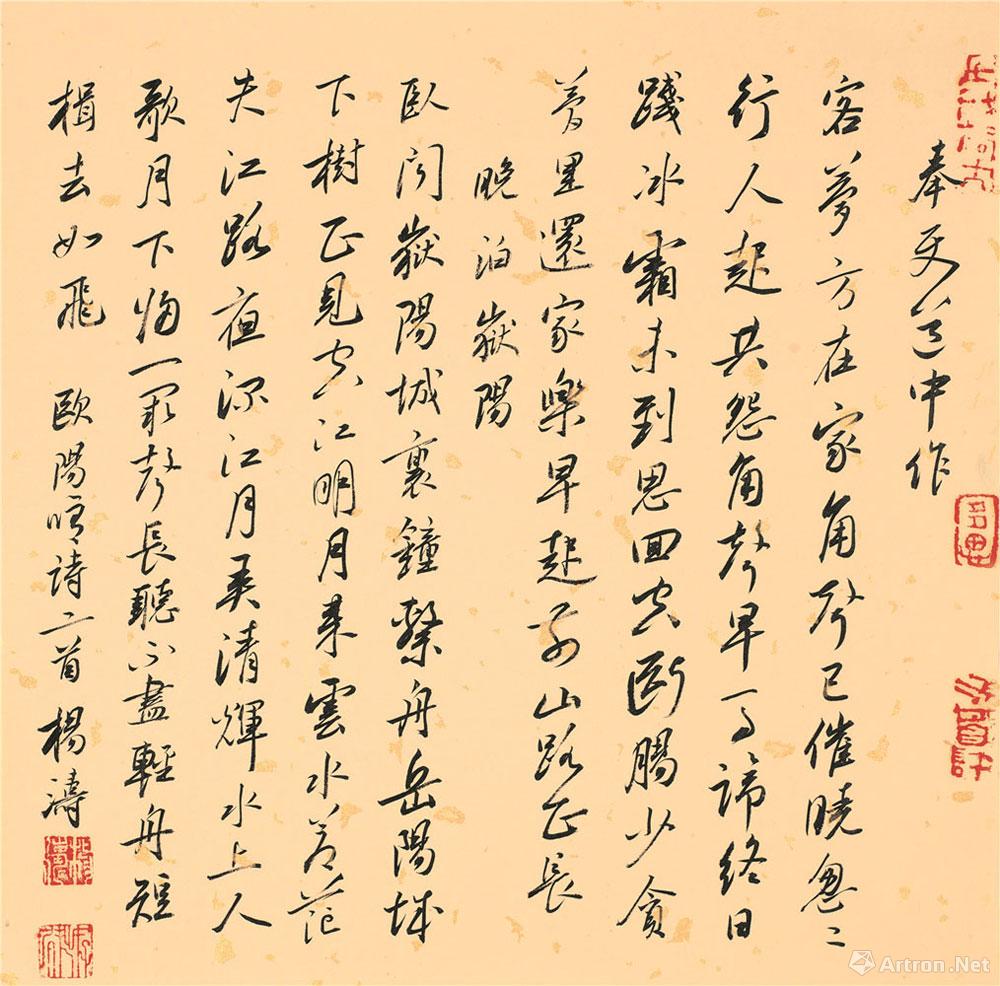 奉使道中作
客夢方在家角聲已催曉怱〻
行人起共怨角聲早馬蹄終日
踐冰霜未到思回空斷腸少貪
夢里還家樂早起前山路正長
晚泊嶽陽
臥聞嶽陽城裏鐘繫舟岳陽城
下樹正見空江明月來雲水蒼茫
失江路夜深江月弄清輝水上人
歌月下歸一闋聲長聽不盡輕舟短
楫去如飛 歐陽脩詩二首 楊濤
Artron.Net